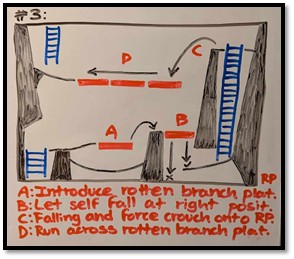 #3:
D
C
A
B
x
RP
A: Introduce rotten branch plat.
B: Let self fall at right posit.
C: Falling and force crouch onto RP.
D: Run across rotten branch plat.